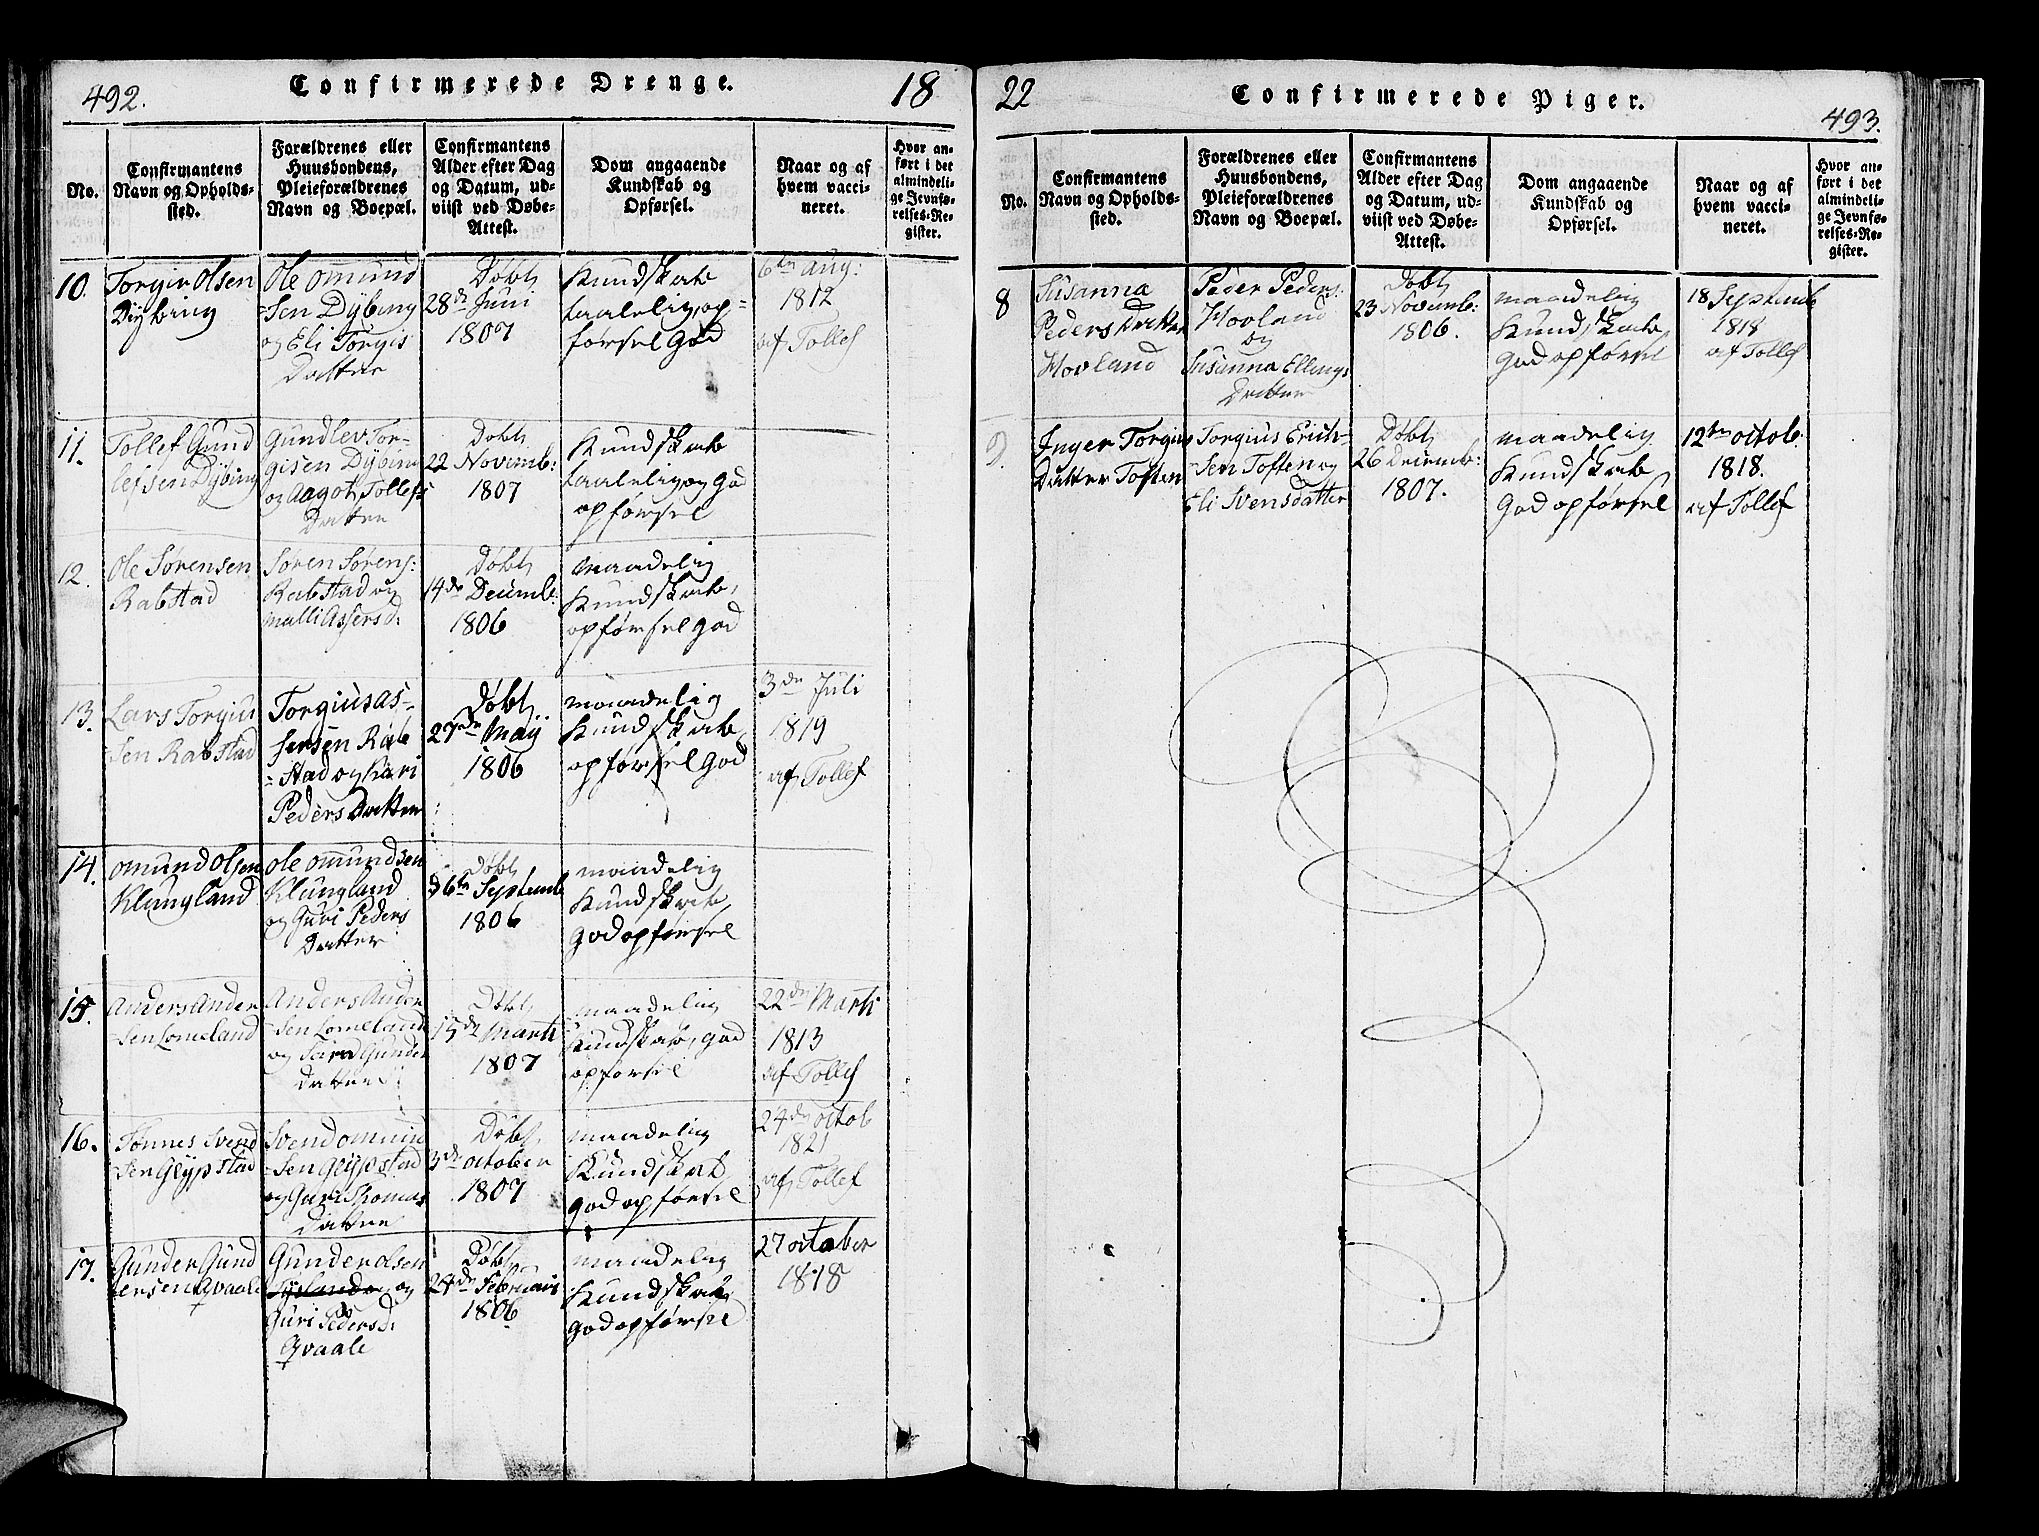 492.
Confirmerede Drenge.
18
No.
Confirmantens
Navn og Opholds-
sted.
Forældrenes eller
Huusbondens,
Pleieforældrenes
Navn og Boepæl.
Confirmantens
Alder efter Dag
og Datum, ud-
viist ved Døbe-
Attest.
Dom angaaende
Kundskab og
Opførsel.
Naar og af
hvem vacci-
neret.
Hvor an-
ført i det
almindeli-
ge Jevnfø-
relses-Re-
gister.
10.
Torgin Olsen
Dybing
Ole Omund
=sen Dÿbing
og Eli Torgis
Datter
Døbt
28de Juni
1807
Kundskab
taalelig, op=
førsel god
6te Aug:
1812
af Tollef
11.
Tollef Gund
lefsen Dÿbing
Gundlev Tor-
gisen Dÿbing
og Aagot Tollefs
Datter
Døbt
22 Novemb:
1807
Kundskab
taalelig og god
opførsel
12.
Ole Sørensen
Rabstad
Søren Sørens:
Rabstad og
Malli Assersd:
Døbt
14de Decemb:
1806
maadelig
Kundskab,
opførsel god
13.
Lars Torgius
=sen Rabstad
Torgius As-
sersen Rab
=stad og Kari
Peders Datter
Døbt
27de Maÿ
1806
maadelig
Kundskab,
opførsel god
3de Juli
1819
af Tollef
14.
Omund Olsen
Klungland
Ole Omundsen
Klungland
og Guri Peders
Datter
Døbt
6te Septemb
1806
maadelig
Kundskab,
god opførsel
15.
Anders Ander
=sen Lomeland
Anders Ander
=sen Lomeland
og Gunder
Datter
Døbt
15de Marti
1807
maadelig
Kundskab, god
opførsel
22de Marti
1813
af Tollef
16.
Tønnes Svend
=sen Glÿpstad
Svend Omund
=sen Glÿpstad
og Guri Thomas
Datter
Døbt
3de October
1807
maadelig
Kundskab,
god opførsel
24de Octob
1821
af Tollef
17.
Gunder Gund
ersen Qvaale
Gunder Olsen
og
Guri Pedersd:
Qvaale
Døbt
24de Februari
1806
maadelig
Kundskab,
god opførsel
27 October
1818
22
Confirmerede Piger.
493.
No.
Confirmantens
Navn og Opholds-
sted.
Forældrenes eller
Huusbondens,
Pleieforældrenes
Navn og Boepæl.
Confirmantens
Alder efter Dag
og Datum, ud-
viist ved Døbe-
Attest.
Dom angaaende
Kundskab og
Opførsel.
Naar og af
hvem vacci-
neret.
Hvor an-
ført i det
almindeli-
ge Jevnfø-
relses-Re-
gister.
8
Susanna
Peders Datter
Hovland
Peder Peders:
Hovland
og
Susanna Ellings
Datter
Døbt
23 Novemb:
1806.
maadelig
Kundskab,
god opførsel
18 Septemb
1818
af Tollef
9.
Inger Torgius
Datter Toften
Torgius Erich-
=sen Toften og
Eli Svensdatter
Døbt
26 Decemb:
1807.
maadelig
Kundskab,
god opførsel
12te Octob.
1818.
af Tollef